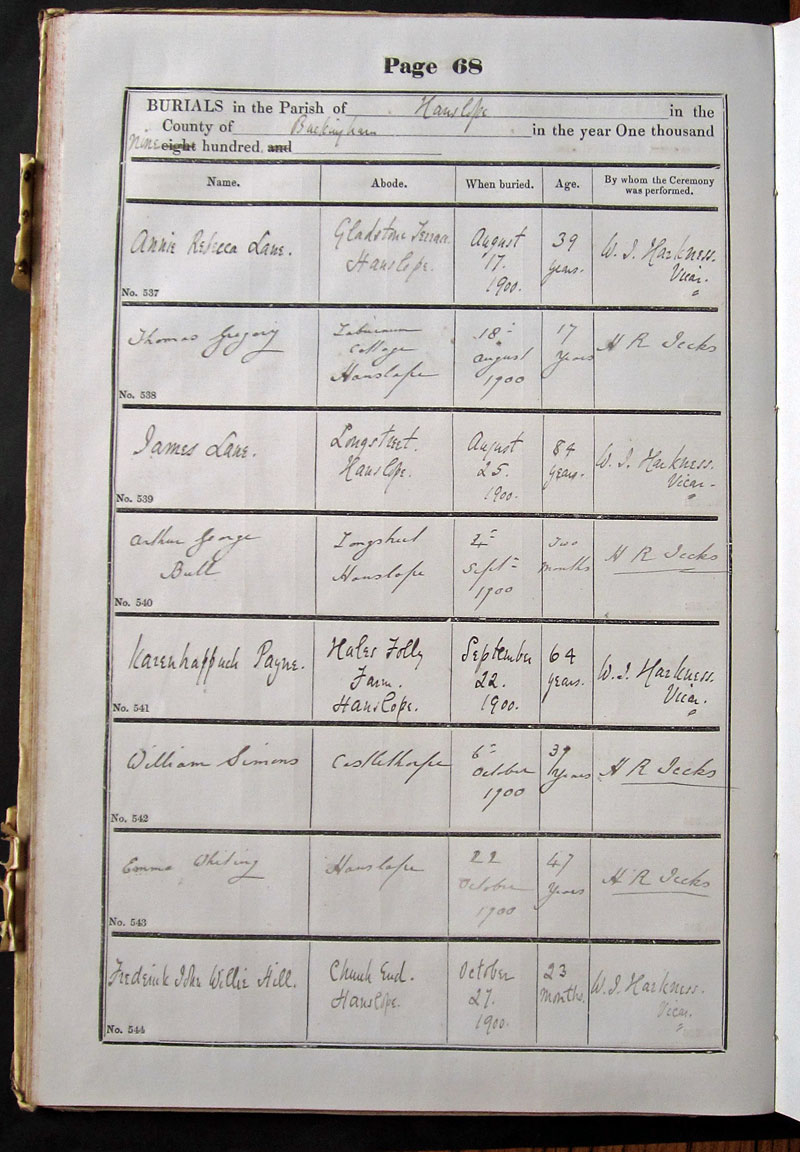 Page 68
BURIALS in the Parish of Hanslope in the
County of Buckingham in the year One thousand
Nine eight hundred and
Name. Abode. When buried. Age. By whom the Ceremony was performed.
Annie Rebecca Lane. Gladstone Terrace. August 39 W. J. Harkness.
Hanslope. 17. years. Vicar.
1900.
No. 537
Thomas Gregory Laburnum 18 17 H R Jecks
Cottage August Years
Hanslope 1900
No. 538
James Lane. Longstreet. August 84 W. J. Harkness.
Hanslope. 25. years. Vicar.
1900.
No. 539
Arthur George Longstreet Two H R Jecks
Bull Hanslope Sept months
1900
No. 540
Karenhappuch Payne. Hales Folly September 64 W. J. Harkness.
Farm. 22. years. Vicar.
Hanslope. 1900.
No. 541
William Simons Castlethorpe 6 39 H R Jecks
October Years
1900
No. 542
Emma Whiting Hanslope 22 47 H R Jecks
October Years
1900
No. 543
Frederick John Willie Hill. Church End. October 23 W. J. Harkness.
Hanslope. 27. Months. Vicar.
1900.
No. 544